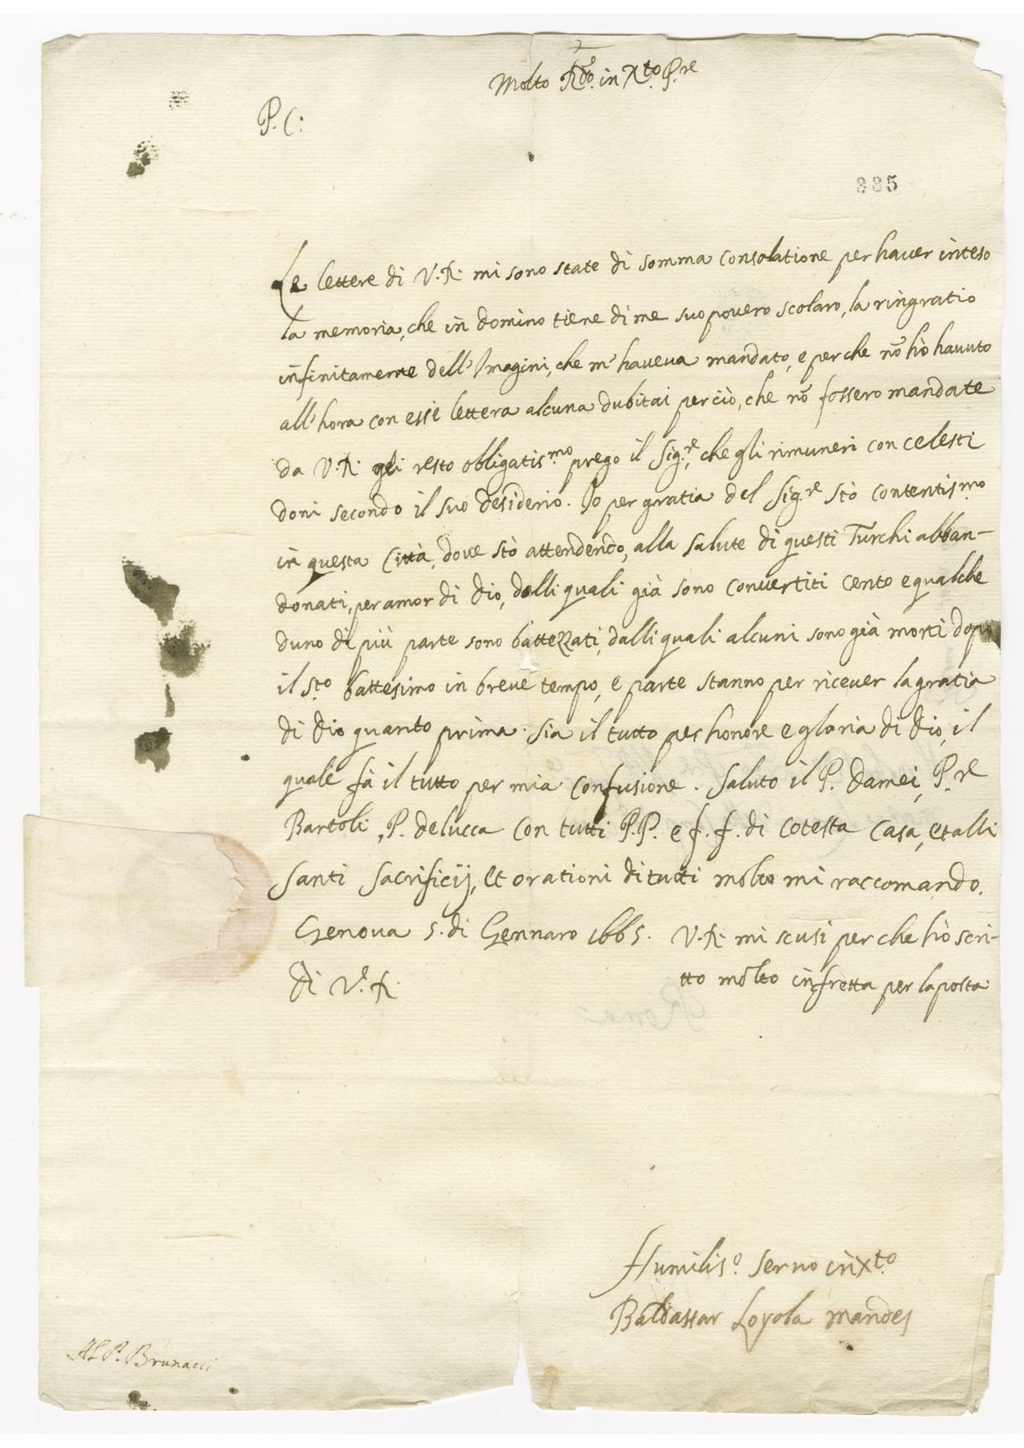 Molto Rdo. in Xto. P.re
P. C:
335
Le lettere di V.R. mi sono state di somma consolatione per haver inteso
la memoria, che in domino tiene di me suo povero scolaro, la ringratio
infinitamente dell'Imagini, che m'haveva mandato, e perche nō hò havuto
all'hora con esse lettera alcuna dubitai perciò, che nō fossero mandate
da V.R. gli resto obligatis.mo prego il Sig.re, che gli rimuneri con celesti
doni secondo il suo desiderio. Io per gratia del Sig.re stò contentis.mo
in questa Città, dove stò attendendo, alla salute di questi Turchi abban-
donati, per amor di Dio, delli quali già sono convertiti cento e qualche
duno di più parte sono battezzati, dalli quali alcuni sono già morti dopo
il S.to battesimo in breve tempo, e parte stanno per ricever la gratia
di Dio quanto prima. Sia il tutto per honore e gloria di Dio, il
quale fà il tutto per mia confusione. Saluto il P. Damei, P.re
Bartoli, P. delucca con tutti P.P. e f.f. di cotesta Casa, et alli
Santi Sacrificij, et orationi di tutti molto mi raccomando.
Genova 5. di Gennaro 1665. V.R. mi scusi perche hò scri-
di V.R. tto molto in fretta per la posta
Humilis.o servo in Xto
Baldassar Loyola Mandes
Al P. Brunacci